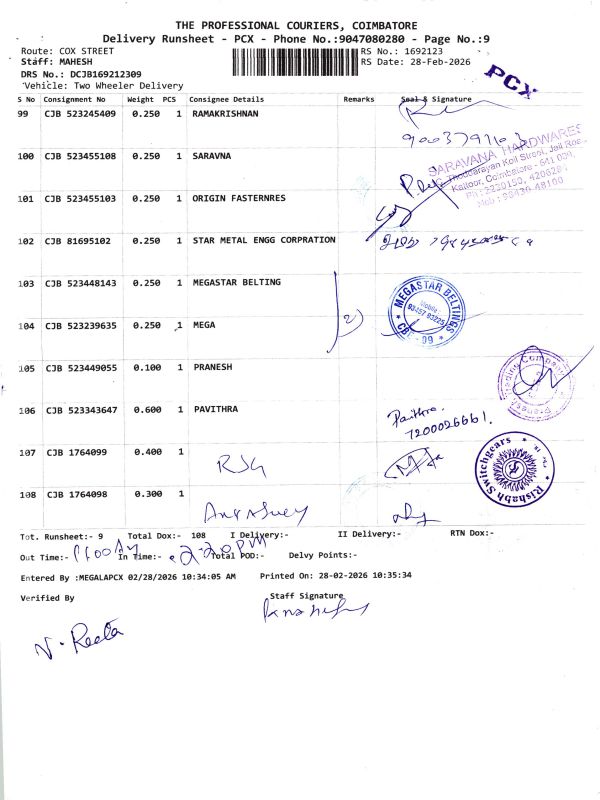 THE PROFESSIONAL COURIERS, COIMBATORE
Delivery Runsheet - PCX - Phone No.:9047080280 - Page No.:9
Route: COX STREET
RS No.: 1692123
Staff: MAHESH
RS Date: 28-Feb-2026
DRS No.: DCJB169212309
Vehicle: Two Wheeler Delivery
PCX
S No Consignment No Weight PCS Consignee Details Remarks Seal & Signature
99 CJB 523245409 0.250 1 RAMAKRISHNAN
100 CJB 523455108 0.250 1 SARAVNA
SARAVANA HARDWARES
101 CJB 523455103 0.250 1 ORIGIN FASTERNRES
102 CJB 81695102 0.250 1 STAR METAL ENGG CORPRATION
103 CJB 523448143 0.250 1 MEGASTAR BELTING
MEGASTAR BELTINGS
Mobile:
93457 93225
CBE - 99
104 CJB 523239635 0.250 1 MEGA
2)
105 CJB 523449055 0.100 1 PRANESH
106 CJB 523343647 0.600 1 PAVITHRA
7200026661.
107 CJB 1764099 0.400 1
Rishabh Switchgears
108 CJB 1764098 0.300 1
Tot. Runsheet:- 9 Total Dox:- 108 I Delivery:- II Delivery:- RTN Dox:-
Out Time:- 11:00 AM In Time:- 2-20PM Total POD:- Delvy Points:-
Entered By :MEGALAPCX 02/28/2026 10:34:05 AM Printed On: 28-02-2026 10:35:34
Verified By
Staff Signature
N. Reeta